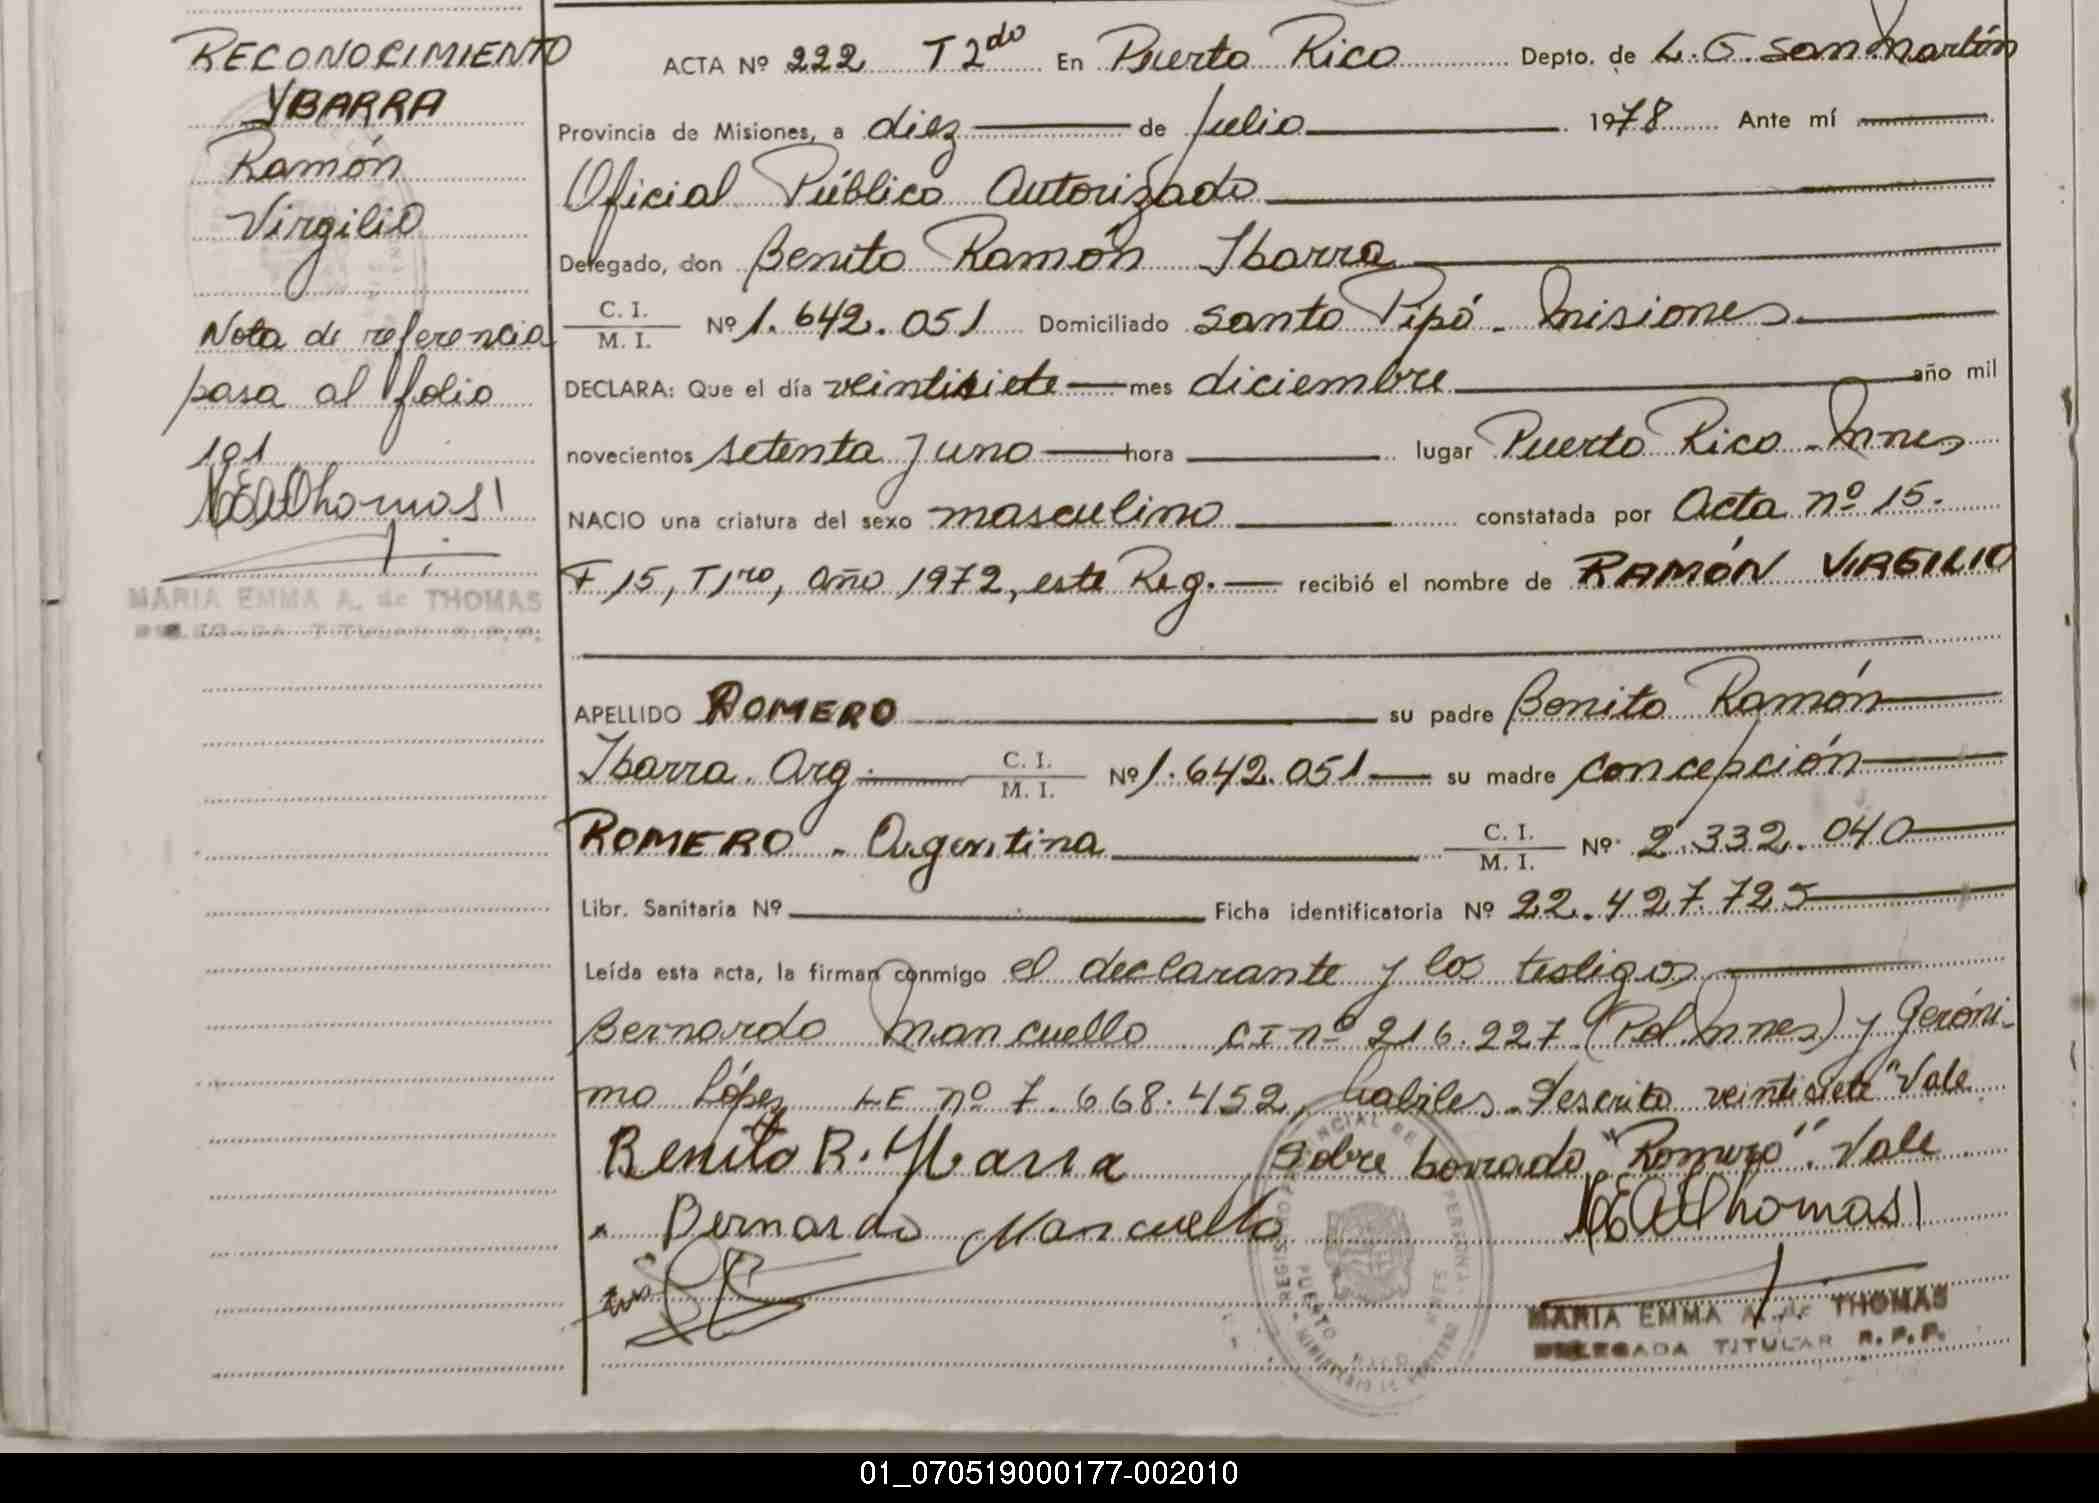 RECONOCIMIENTO
YBARRA
Ramón
Virgilio
Nota de referencia
pasa al folio
191
MEAThomas
MARIA EMMA A. de THOMAS
DELEGADA TITULAR R.P.P.
ACTA Nº 222 T 2do En Puerto Rico Depto. de L. G. San Martín
Provincia de Misiones, a diez de julio 1978 Ante mí
Oficial Público Autorizado
Delegado, don Benito Ramón Ibarra
C. I. / M. I. Nº 1.642.051 Domiciliado Santo Pipó - Misiones
DECLARA: Que el día veintisiete mes diciembre año mil
novecientos setenta y uno hora lugar Puerto Rico - Mnes
NACIO una criatura del sexo masculino constatada por Acta nº 15.
F 15, T 1ro, Año 1972, este Reg. recibió el nombre de RAMÓN VIRGILIO
APELLIDO ROMERO su padre Benito Ramón
Ibarra. Arg. C. I. / M. I. Nº 1.642.051 su madre Concepción
ROMERO - Argentina C. I. / M. I. Nº 2.332.040
Libr. Sanitaria Nº Ficha identificatoria Nº 22.427.725
Leída esta acta, la firman conmigo el declarante y los testigos
Bernardo Mancuello CI nº 216.227 (Pol. Mnes) y Geróni-
mo López LE nº 7.668.452, habiles. Tescrito veintisiete "Vale
Benito R. Ybarra Sobre borrado "Romero". Vale
Bernardo Mancuello MEAThomas
REGISTRO PROVINCIAL DE PERSONAS
PUERTO RICO
MNES
MARIA EMMA A. de THOMAS
DELEGADA TITULAR R.P.P.
01_070519000177-002010